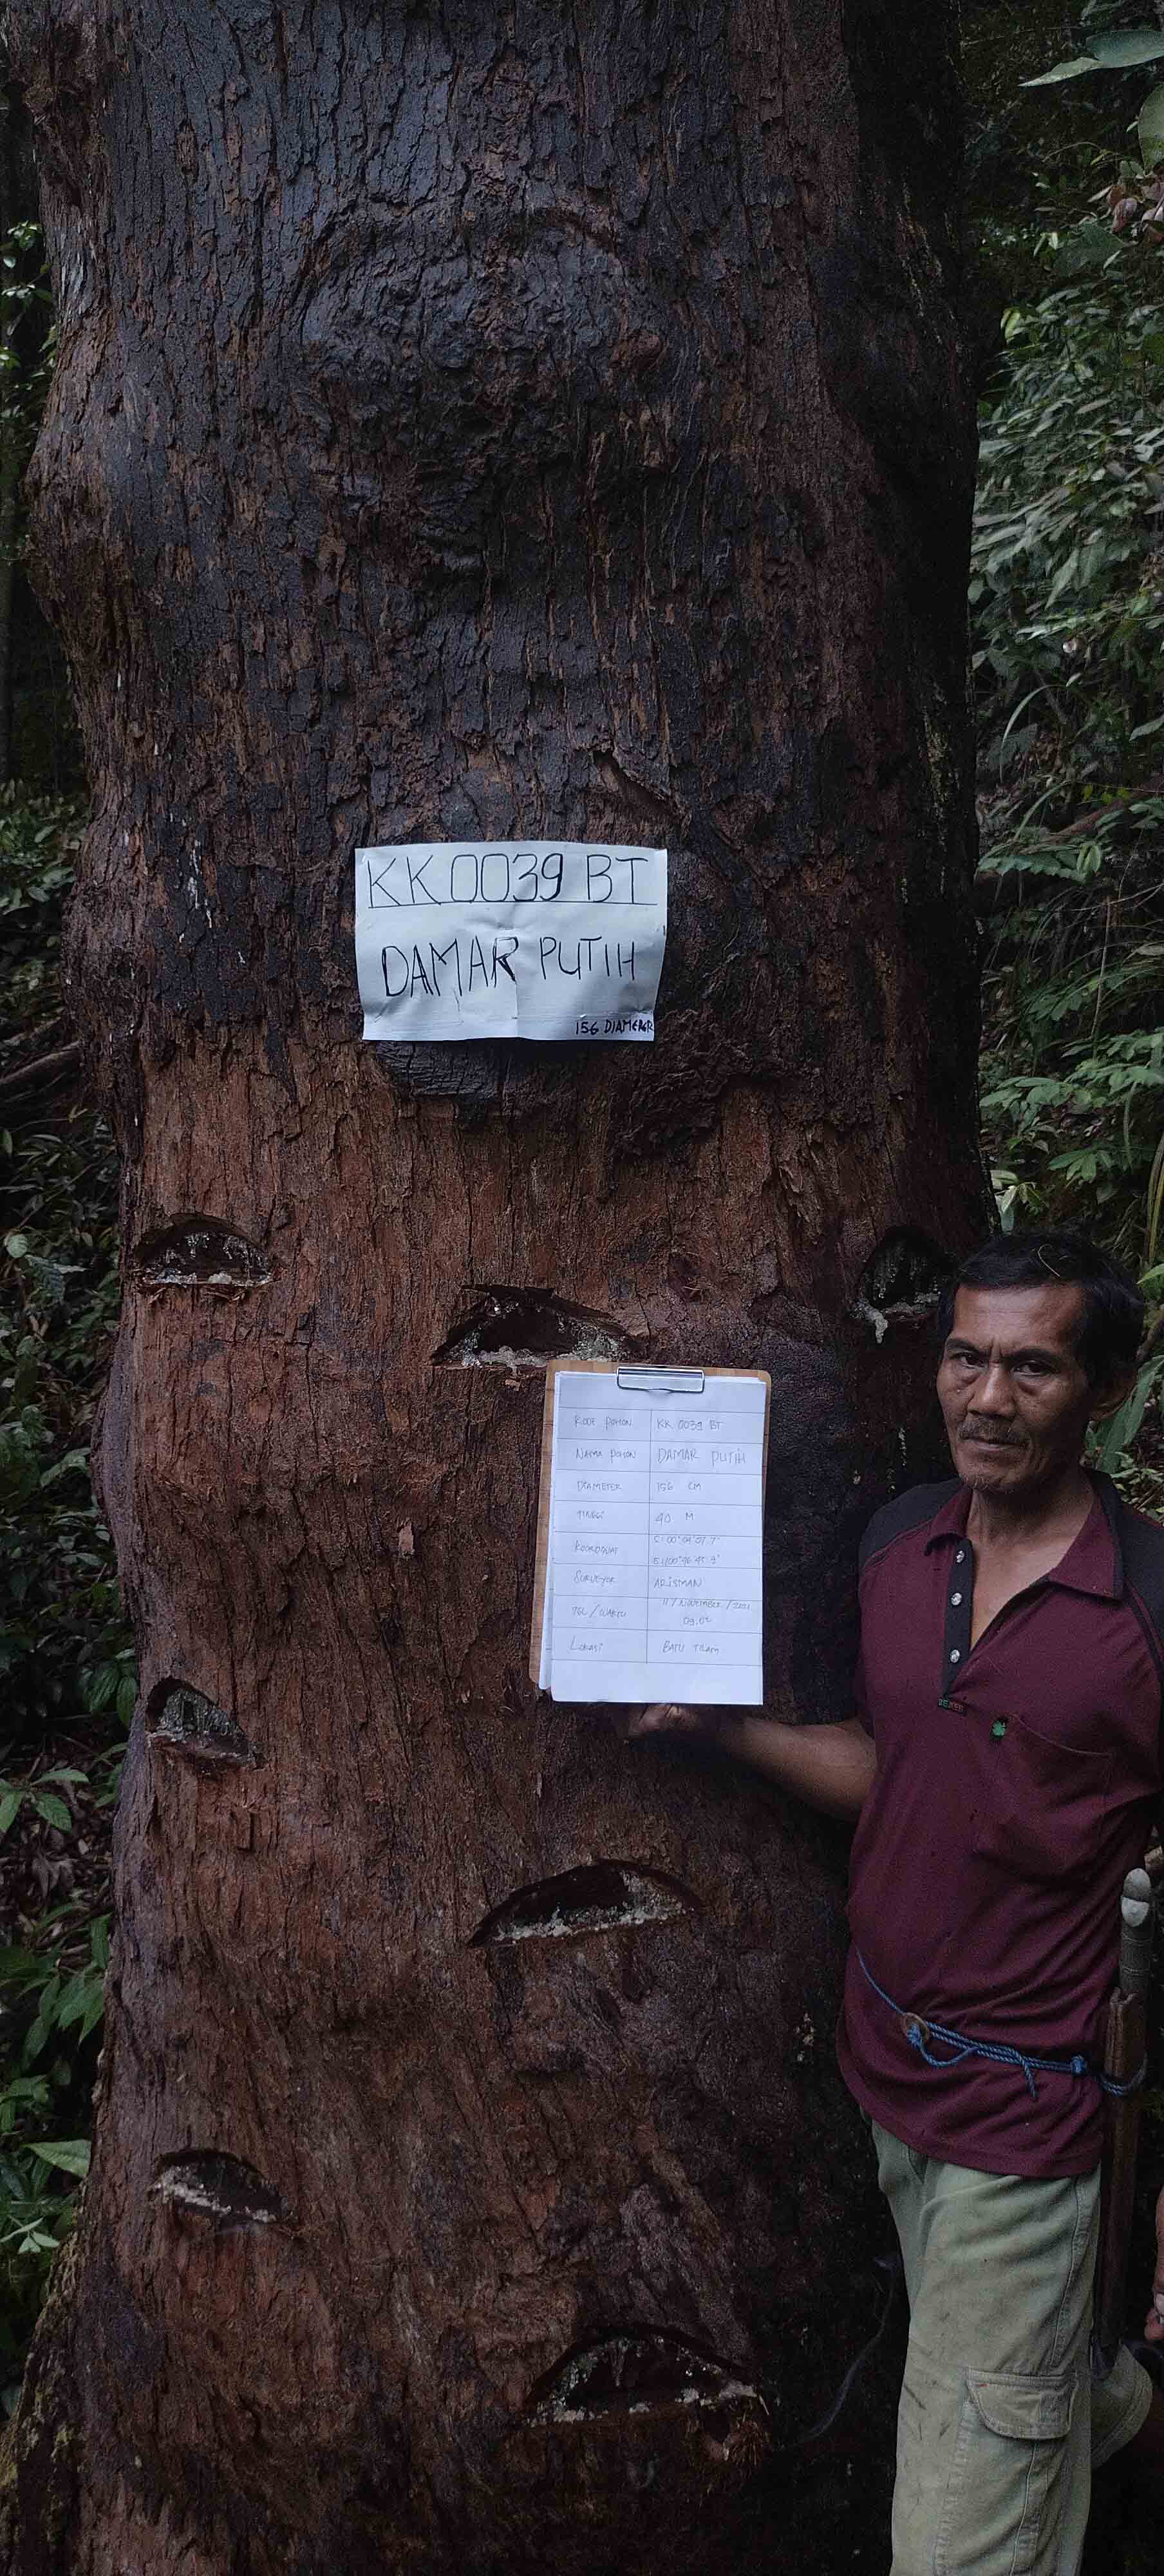 KK 0039 BT
DAMAR PUTIH
156 DIAMETER
KODE POHON KK 0039 BT
NAMA POHON DAMAR PUTIH
DIAMETER 156 CM
TINGGI 40 M
KOORDINAT
SURVEYOR ARISMAN
TGL/WAKTU 11/NOVEMBER/2021
09.02
Lokasi BATU TILAM